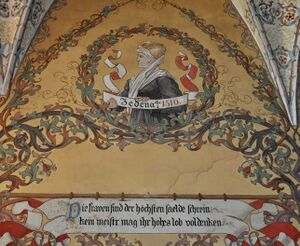 Zedena † 1510.
Die fraven sind der höchsten saelde schrein:
kein meistr mag ihr hohes lob voldenken